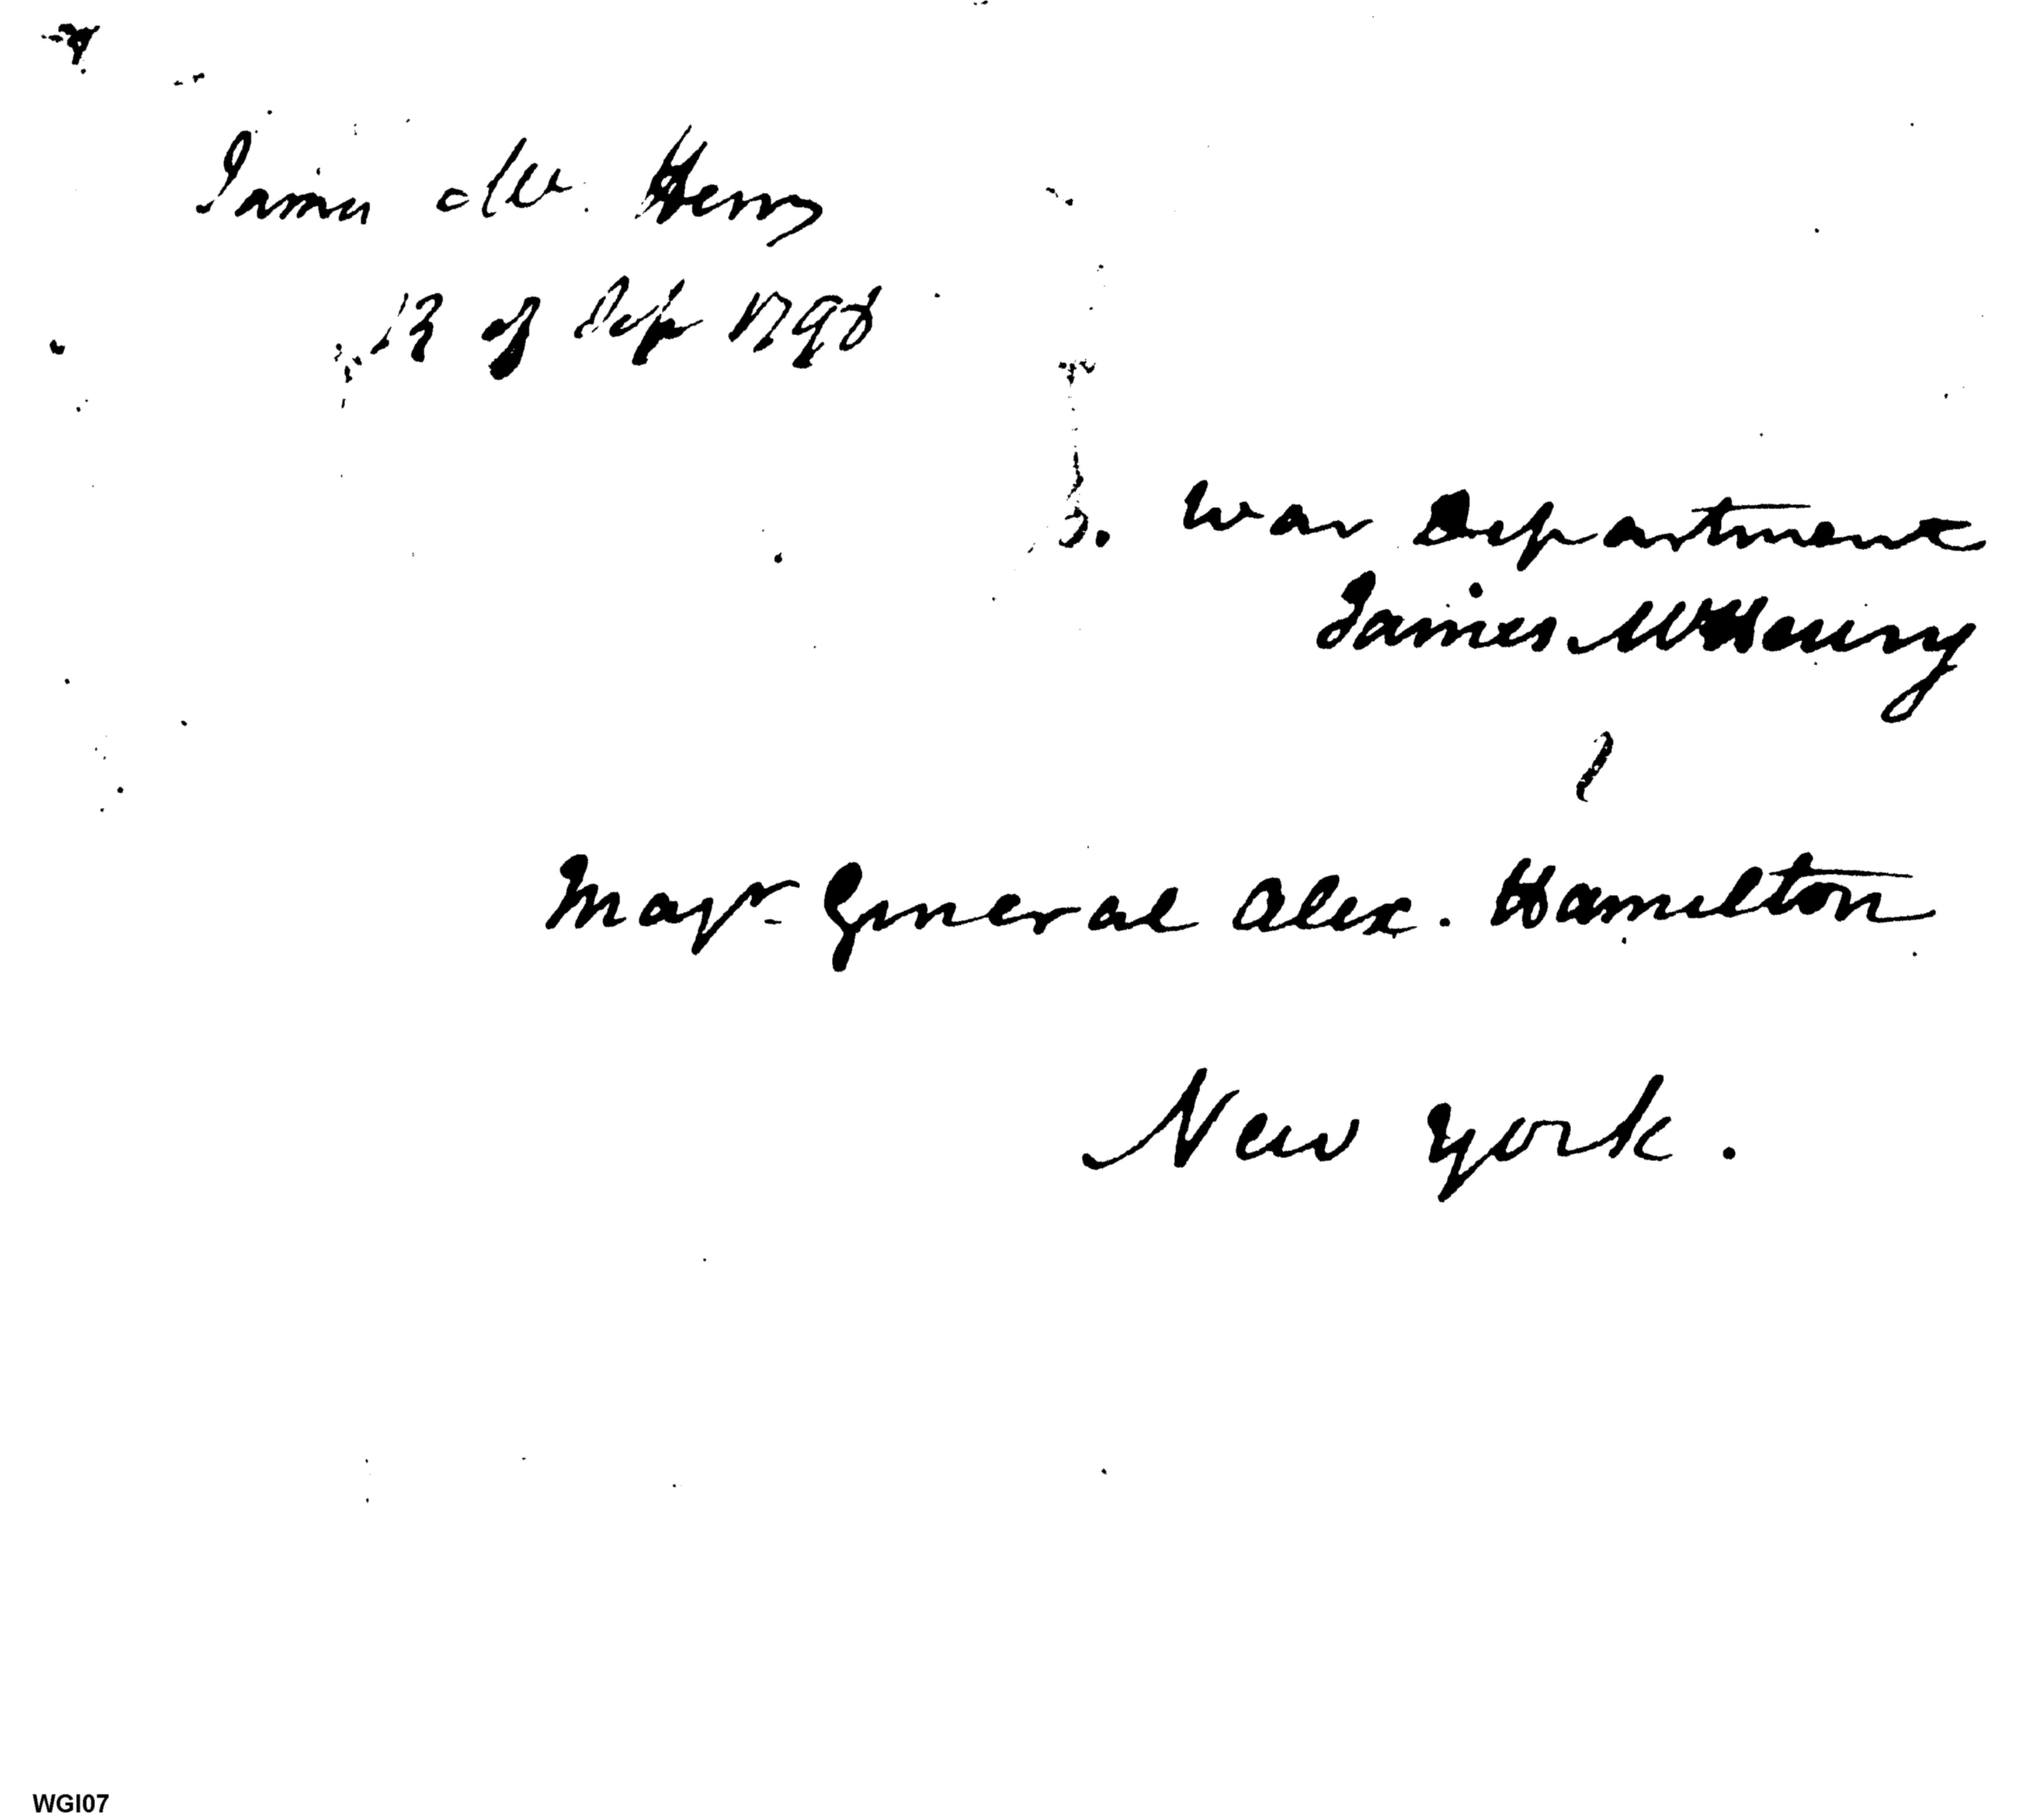 James McHenry
13 of Sep 1798
War Department
James McHenry
Majr General Alex. Hamilton
New York.
WGI07